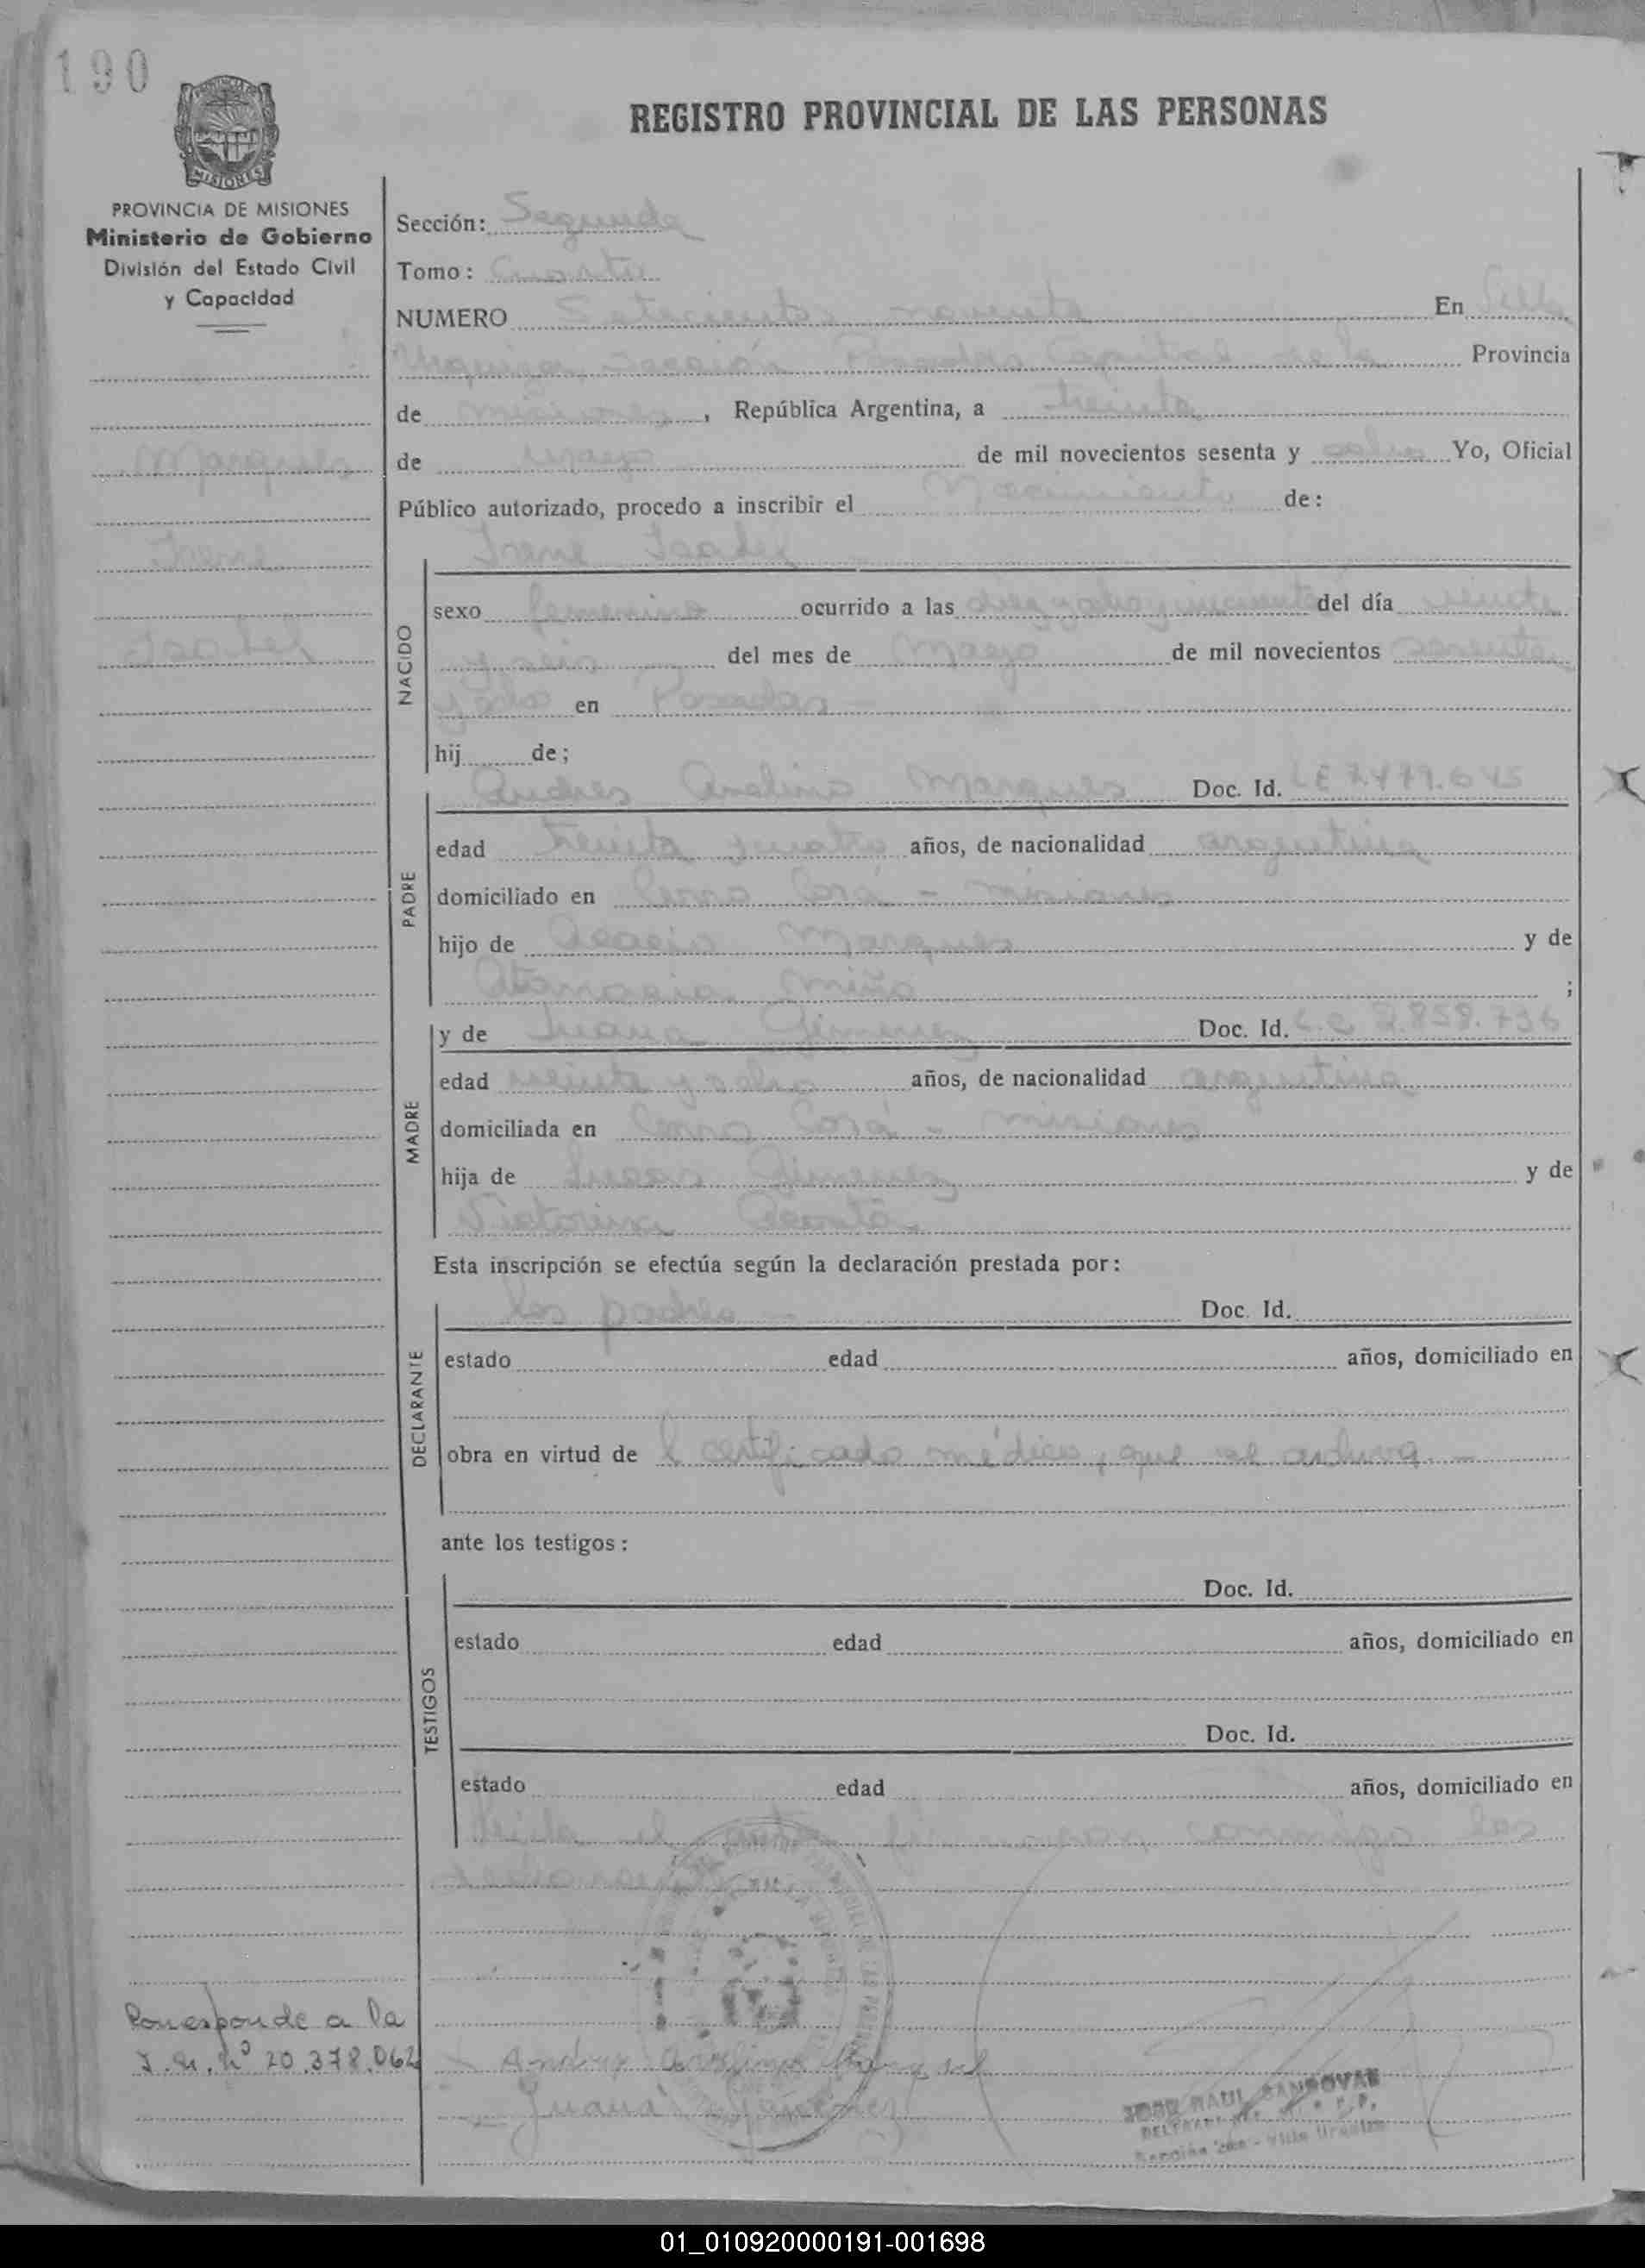 190
REGISTRO PROVINCIAL DE LAS PERSONAS
MISIONES
PROVINCIA DE MISIONES
Ministerio de Gobierno
División del Estado Civil
y Capacidad
Marques
Irene
Isabel
Sección: Segunda
Tomo: Cuarto
NUMERO Setecientos noventa En Villa
Urquiza, Sección Posadas Capital de la Provincia
de Misiones, República Argentina, a treinta
de mayo de mil novecientos sesenta y ocho Yo, Oficial
Público autorizado, procedo a inscribir el Nacimiento de:
Irene Isabel
NACIDO
sexo femenino ocurrido a las del día veinte
y seis del mes de Mayo de mil novecientos sesenta
y ocho en Posadas -
hij de;
PADRE
Andres Avelino Marques Doc. Id. LE 7.479.645
edad treinta y cuatro años, de nacionalidad argentina
domiciliado en Cerro Corá - Misiones
hijo de Acacio Marques y de
Atanacia Miño ;
MADRE
y de Juana Gimenez Doc. Id. L.C. 2.858.736
edad veinte y ocho años, de nacionalidad argentina
domiciliada en Cerro Corá - Misiones
hija de Lucas Gimenez y de
Victorina Acosta
Esta inscripción se efectúa según la declaración prestada por:
DECLARANTE
los padres - Doc. Id.
estado edad años, domiciliado en
obra en virtud de l certificado médico, que se archiva. -
ante los testigos:
TESTIGOS
Doc. Id.
estado edad años, domiciliado en
Doc. Id.
estado edad años, domiciliado en
leida el acta firmaron conmigo los
declarantes
Corresponde a la
nº 20.378.062
Andres Avelino Marques
Juana Gimenez
JOSE RAUL SANDOVAL
Sección 2da - Villa Urquiza
01_010920000191-001698